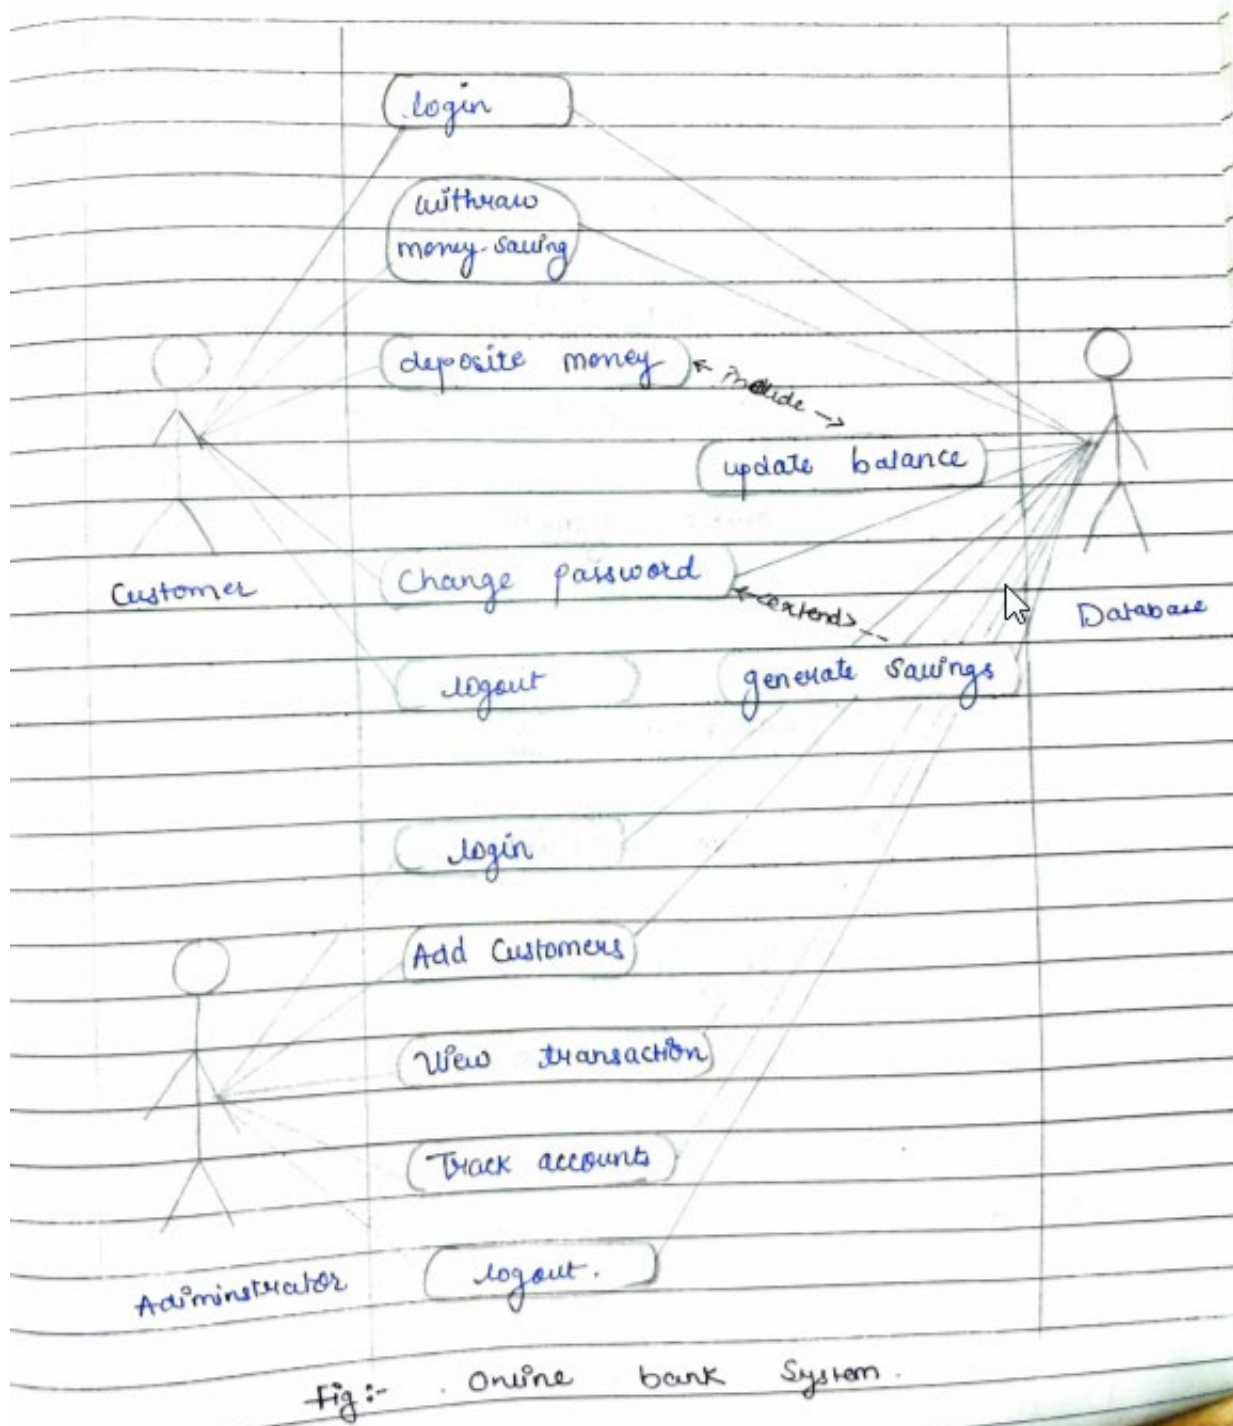 login
withraw
money-saving
deposite money
include
update balance
Customer
Change password
<extend>
Database
logout
generate Savings
login
Add Customers
View transaction
Track accounts
logout.
Adiminstrator
Fig:- Online bank System.